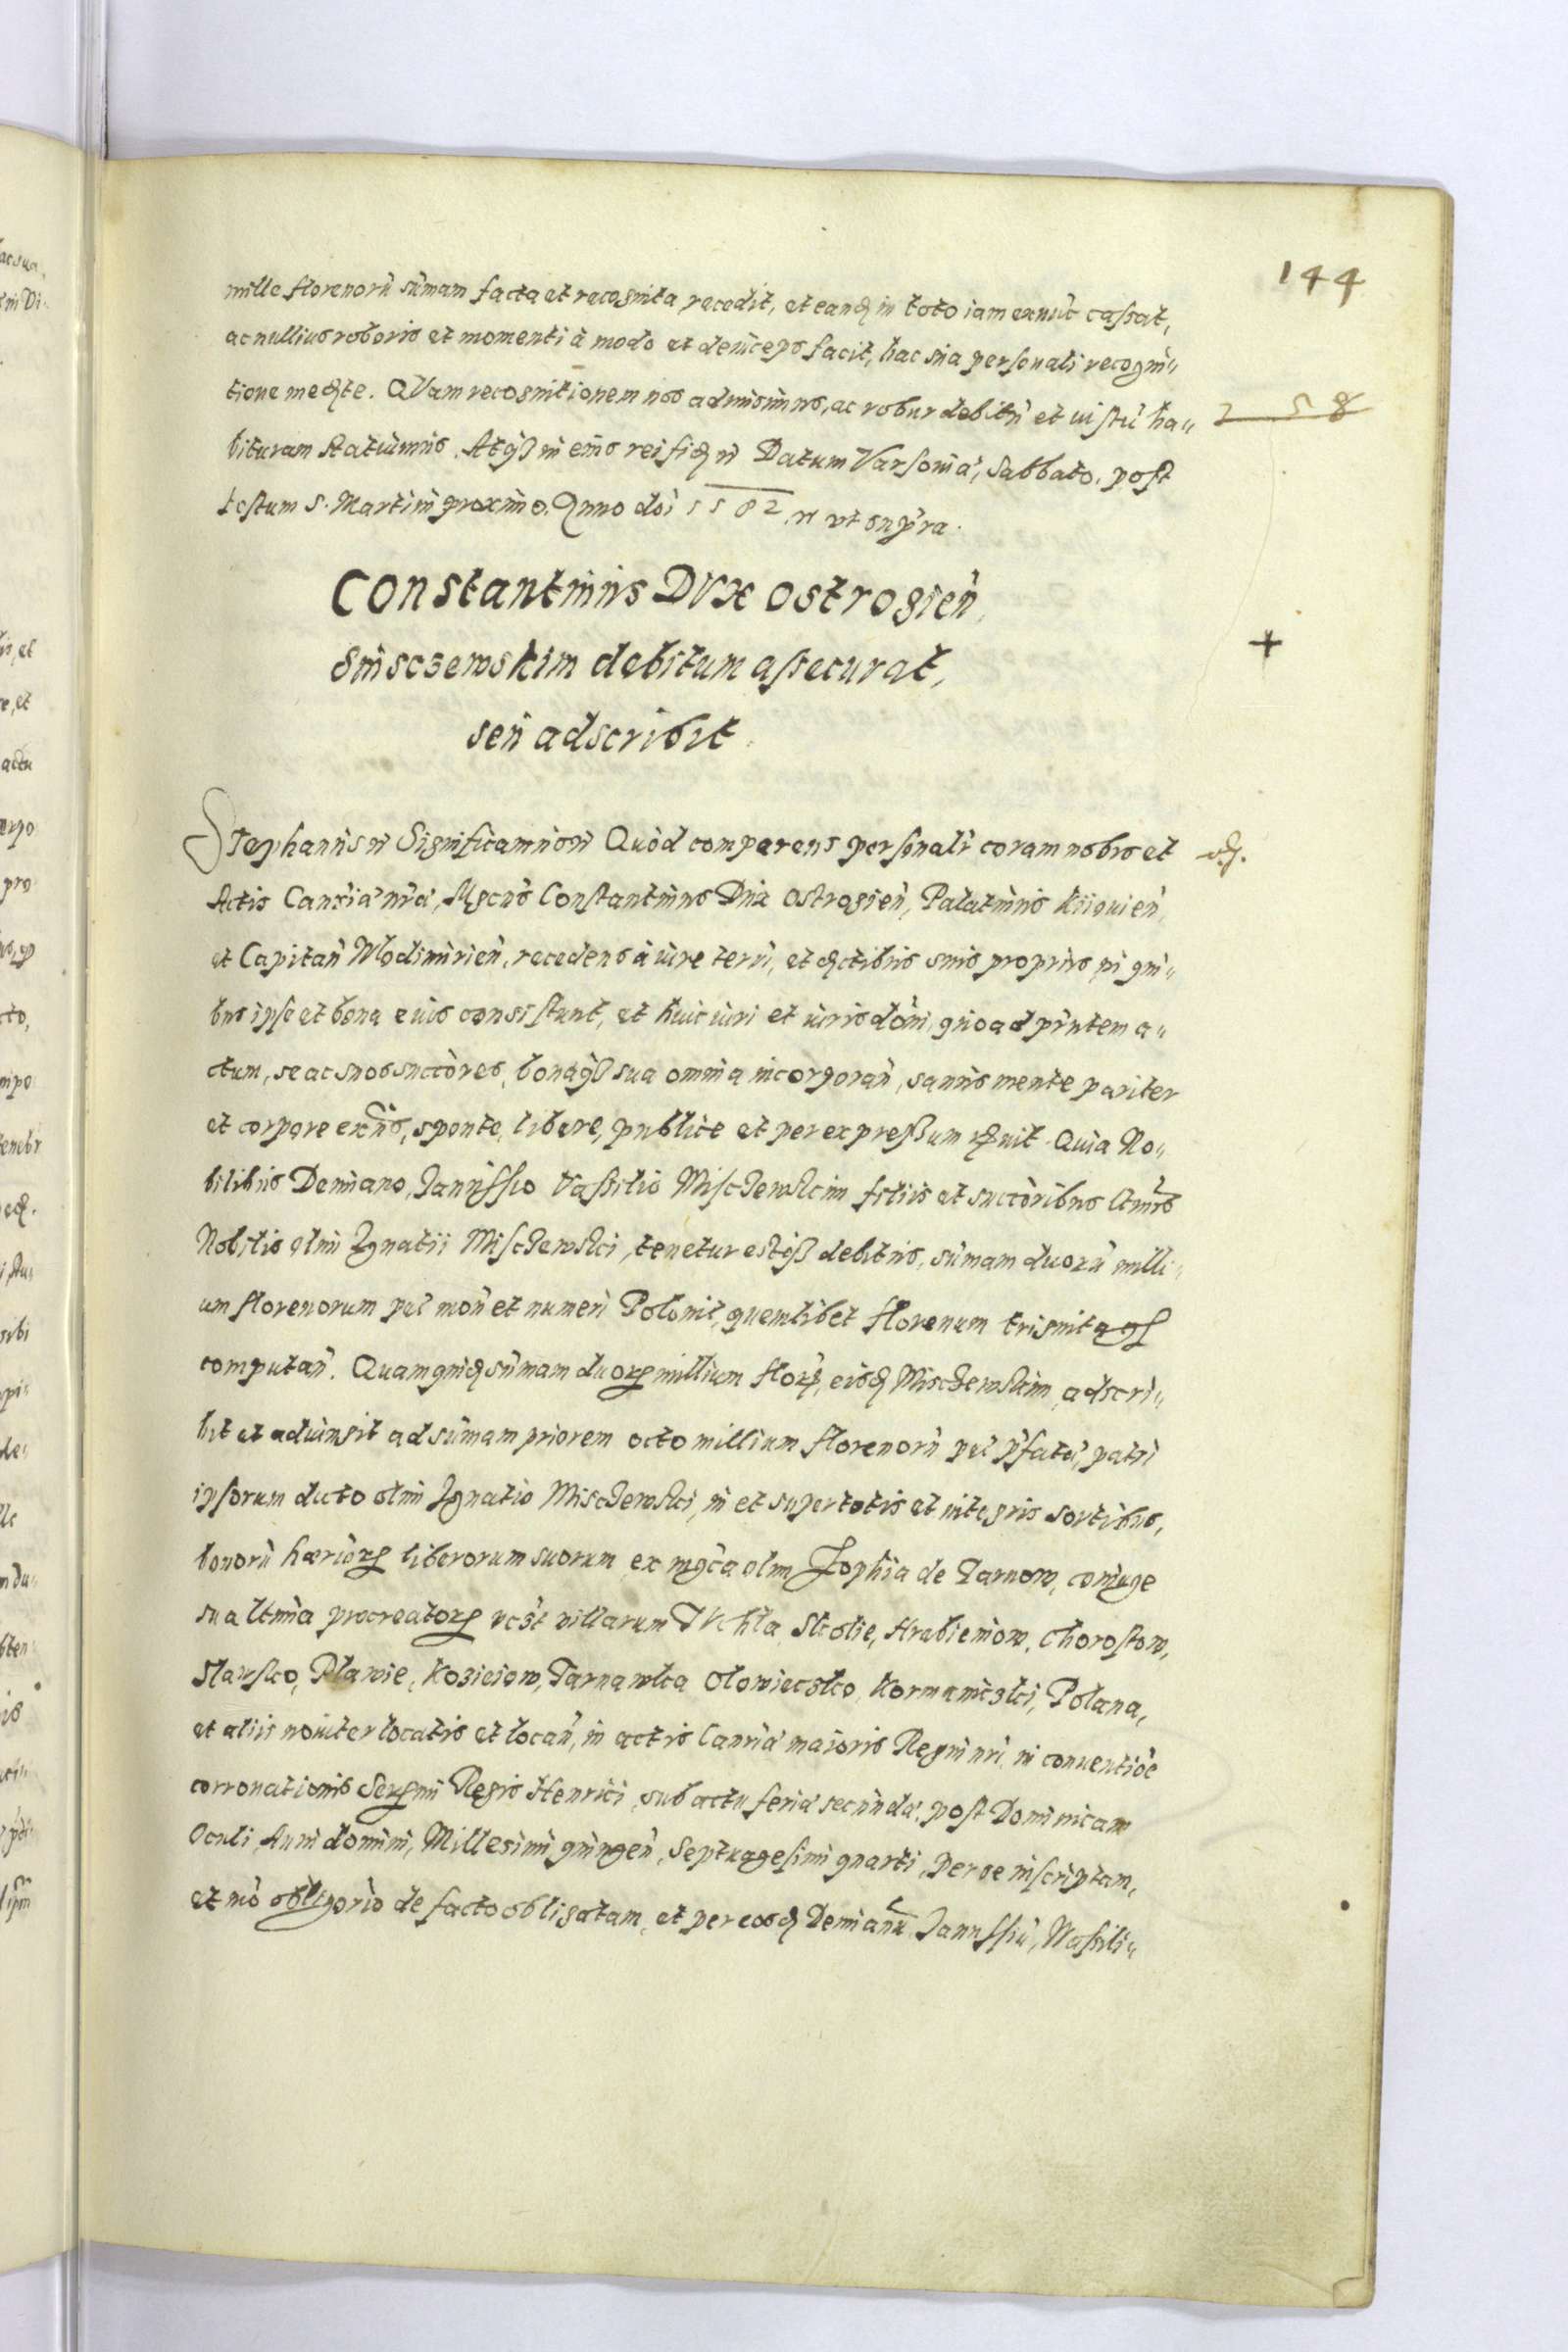 144
mille florenorū sūmam facta et recognita recedit, et eandꝫ in toto iam exnūc cassat,
ac nullius roboris et momenti à modo et deinceps facit, hac sua personali recogni„
tione medꝫte. Quam recognitionem nos admisimus, ac robur debitū et iustū ha„
bituram statuimus. Atqꝫ in eius rei fidꝫ ꝛc Datum Varsouiæ, Sabbato, post
festum S. Martini proximo. Anno dni 1582 ꝛc vt supra.
Constantinus DVX Ostrogien̄
Smisczewskim debitum assecurat,
seu adscribit
Stephanus ꝛc Significamus ꝛc Quòd comparens personalr̄ coram nobis et
Actis Can̄riæ n̄ræ, Mgcūs Constantinus Dux Ostrogien̄, Palatinus Kiiouien̄,
et Capitan̄ Wlodimirien̄, recedens à iure terrī, et dꝫctibus suis proprijs, in qui„
bus ipse et bona eius consistunt, et huic iuri et iurisdōni, quoad pn̄tem a„
ctum, se ac suos succōres, bonaqꝫ sua omnia incorporan̄, sanus mente pariter
et corpore ex̄ns, sponte, libere, publice et per expressum rꝫuit. Quia No„
bilibus Demiano, Janussio Vassilio Miscżewskim filiis et succōribus
Nobilis olim Ignatii Miscżewski, tenetur estqꝫ debitus, sūmam duorū milli„
um florenorum pec̄ mon̄ et numeri Polonic̄, quemlibet florenum triginta gꝫ
computan̄. Quamquidꝫ sūmam duorꝫ millium florꝫ, eisdꝫ Miscżewskim adscri„
bit et adiungit ad sūmam priorem octo millium florenorū pec̄ p̄fatæ, patri
ipsorum dicto olim Ignatio Miscżewski, in et super totis et integris sortibus,
bonorū hæriorꝫ liberorum suorum ex mgc̄a olim Zophia de Tarnow, coniuge
sua ltima procreatorꝫ vcꝫt villarum Tuchla, Skolie, Hrabieniow, Chorostow,
Slausko, Plawie, Kozieiow, Tarnawka Olowieczko, Kormaniczki, Polana,
et aliis nouiter locatis et locan̄, in actis Can̄riæ maioris Regni nr̄i, in conuentiōe
corronationis Serꝫmi Regis Henrici, sub actu feria secunda, post Dominicam
Oculi, Anni domini, Millesimi quingen̄, Septuagesimi quarti, per se inscriptam,
et mō obligōrio de facto obligatam, et per eosdꝫ Demianū Janussiū, Wassili„
2 5 8
+